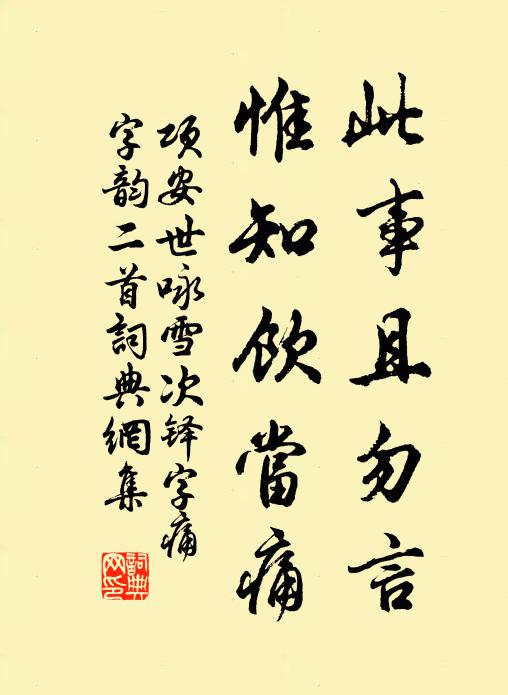 此事且勿言
惟知飲當痛
项安世咏雪次铎字痛
字韵二首詞典網集
詞典网印